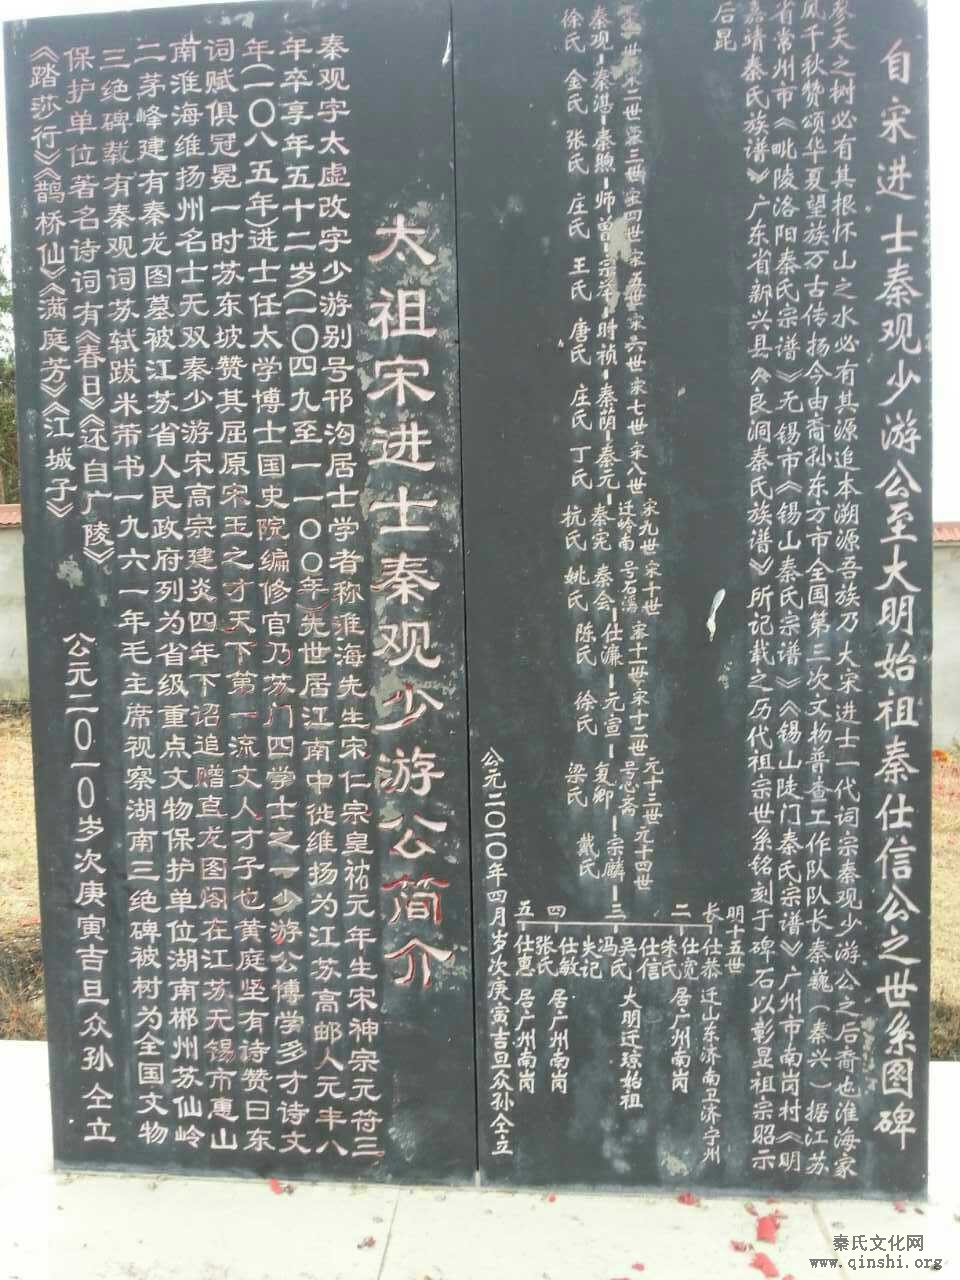 自宋进士秦观少游公至大明始祖秦仕信公之世系图碑
参天之树必有其根怀山之水必有其源追本溯源吾族乃大宋进士一代词宗秦观少游公之后裔也淮海家
风千秋赞颂华夏望族万古传扬今由裔孙东方市全国第三次文物普查工作队队长秦巍（秦兴）据江苏
省常州市《毗陵洛阳秦氏宗谱》无锡市《锡山秦氏宗谱》《锡山陡门秦氏宗谱》广州市南岗村《明
嘉靖秦氏族谱》广东省新兴县《良洞秦氏族谱》所记载之历代祖宗世系铭刻于碑石以彰显祖宗昭示
后昆
宋二世 宋三世 宋四世 宋五世 宋六世 宋七世 宋八世 宋九世 宋十世 宋十一世 宋十二世 元十三世 元十四世
迁岭南 号石 号忍斋
秦观 秦湛 秦煦 师曾 时祯 秦荫 秦元 秦宪 秦会 仕濂 元宣 复卿 宗麟
徐氏 金氏 张氏 庄氏 王氏 唐氏 庄氏 丁氏 杭氏 姚氏 陈氏 徐氏 梁氏 戴氏
明十五世
长 仕恭 迁山东济南卫济宁州
二 仕宽 朱氏 居广州南岗
三 仕信 吴氏 冯氏 大明迁琼始祖
失记
四 仕敏 张氏 居广州南岗
五 仕惠 居广州南岗
公元二〇一〇年四月岁次庚寅吉旦众孙仝立
太祖宋进士秦观少游公简介
秦观字太虚改字少游别号邗沟居士学者称淮海先生宋仁宗皇祐元年生宋神宗元符三
年卒享年五十二岁(一〇四九至一一〇〇年)先世居江南中徙维扬为江苏高邮人元丰八
年(一〇八五年)进士任太学博士国史院编修官乃苏门四学士之一少游公博学多才诗文
词赋俱冠冕一时苏东坡赞其屈原宋玉之才天下第一流文人才子也黄庭坚有诗赞曰东
南淮海维扬州名士无双秦少游宋高宗建炎四年下诏追赠直龙图阁在江苏无锡市惠山
二茅峰建有秦龙图墓被江苏省人民政府列为省级重点文物保护单位湖南郴州苏仙岭
三绝碑载有秦观词苏轼跋米芾书一九六一年毛主席视察湖南三绝碑被树为全国文物
保护单位著名诗词有《春日》《还自广陵》
《踏莎行》《鹊桥仙》《满庭芳》《江城子》
公元二〇一〇岁次庚寅吉旦众孙仝立
秦氏文化网
www.qinshi.org